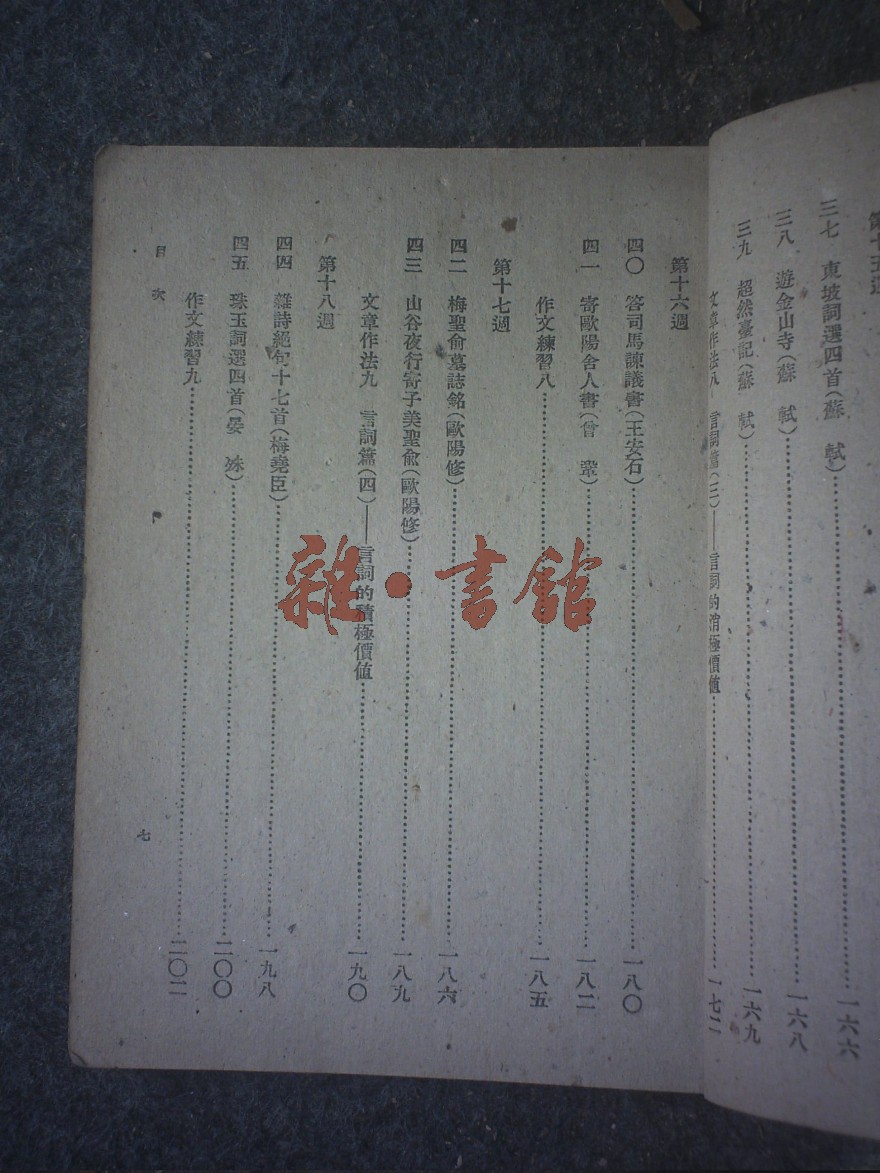 第十五週
三七 東坡詞選四首(蘇 軾)……一六六
三八 遊金山寺(蘇 軾)……一六八
三九 超然臺記(蘇 軾)……一六九
文章作法八 言詞篇(三)——言詞的消極價値……一七二
第十六週
四〇 答司馬諫議書(王安石)……一八〇
四一 寄歐陽舍人書(曾 鞏)……一八二
作文練習八……一八五
第十七週
四二 梅聖俞墓誌銘(歐陽修)……一八六
四三 山谷夜行寄子美聖俞(歐陽修)……一八九
文章作法九 言詞篇(四)——言詞的積極價値……一九〇
第十八週
四四 雜詩絕句十七首(梅堯臣)……一九八
四五 珠玉詞選四首(晏 殊)……二〇〇
作文練習九……二〇二
目次
七
雜·書館